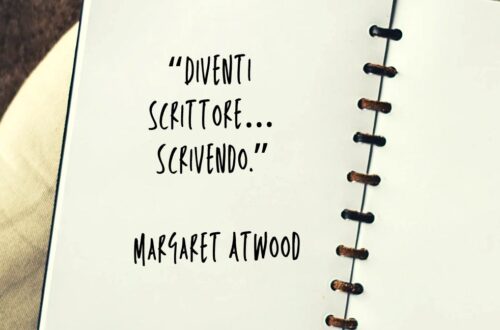 “DIVENTI
SCRITTORE...
SCRIVENDO.”
MARGARET ATWOOD